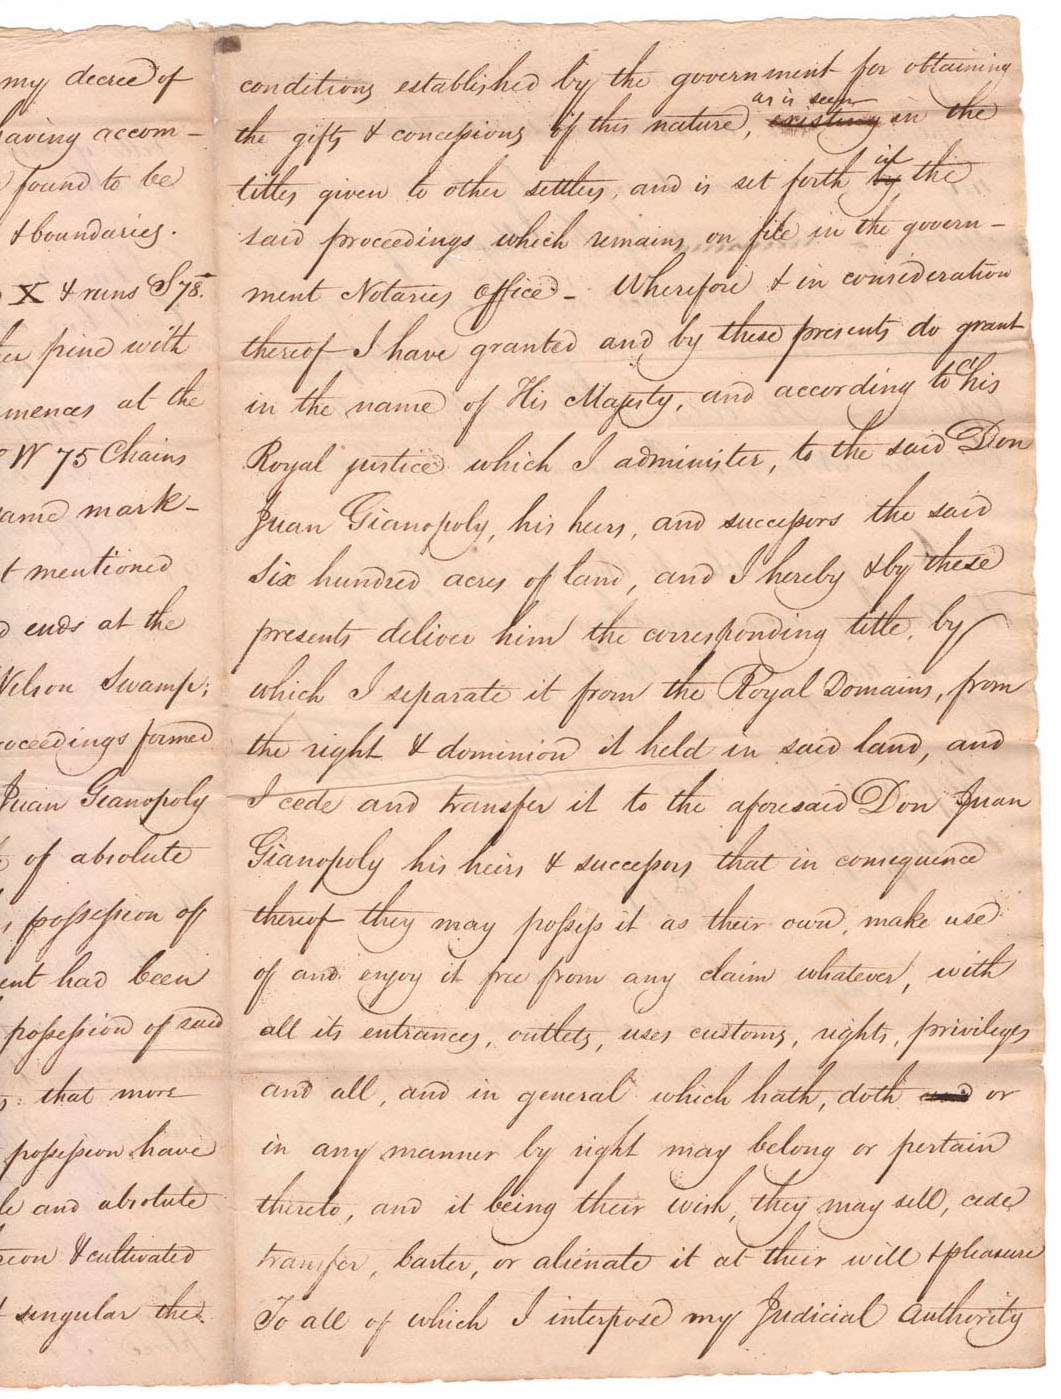 my decree of
having accom-
found to be
& boundaries.
X & runs S 78.
pine with
mences at the
W 75 Chains
same mark-
t mentioned
ends at the
Nelson Swamp;
roceedings formed
Juan Gianopoly
of absolute
possession of
ent had been
possession of said
that more
possession have
and absolute
& cultivated
singular the
conditions established by the government for obtaining
the gifts & concessions of this nature, as is seen existing in the
titles given to other settlers, and is set forth in by the
said proceedings which remains on file in the govern-
ment Notaries office - Wherefore & in consideration
thereof I have granted and by these presents do grant
in the name of His Majesty, and according to his
Royal justice which I administer, to the said Don
Juan Gianopoly, his heirs, and successors the said
Six hundred acres of land, and I hereby & by these
presents deliver him the corresponding title, by
which I separate it from the Royal Domains, from
the right & dominion it held in said land, and
I cede and transfer it to the aforesaid Don Juan
Gianopoly his heirs & successors that in consequence
thereof they may possess it as their own, make use
of and enjoy it free from any claim whatever, with
all its entrances, outlets, uses customs, rights, privileges
and all, and in general which hath, doth and or
in any manner by right may belong or pertain
thereto, and it being their wish, they may sell, cede
transfer, barter, or alienate it at their will & pleasure
To all of which I interpose my Judicial Authority